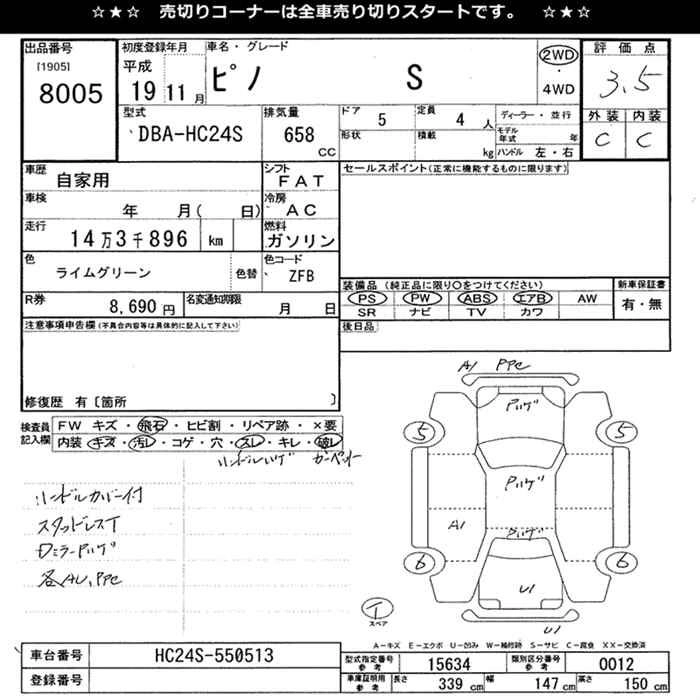 ☆★☆ 売切りコーナーは全車売り切りスタートです。 ☆★☆
出品番号
[1905]
8005
初度登録年月
平成
19 11 月
車名・グレード
ピノ S
2WD
・
4WD
評価点
3.5
外装 内装
C C
型式
DBA-HC24S
排気量
658
CC
ドア 5
形状
定員 4 人
積載 kg
ディーラー・並行
モデル年式 年
ハンドル 左・右
車歴
自家用
シフト
FAT
車検
年 月( 日)
冷房
AC
走行
14万3千896 km
燃料
ガソリン
色
ライムグリーン
色替
色コード
ZFB
R券
8,690 円
名変通知期限
月 日
セールスポイント(正常に機能するものに限ります)
装備品 (純正品に限り○をつけてください)
PS PW ABS エアB AW
SR ナビ TV カワ
新車保証書
有・無
後日品
注意事項申告欄(不具合内容等は具体的に記入して下さい)
修復歴 有〔箇所 〕
検査員記入欄
FW キズ・飛石・ヒビ割・リペア跡・×要
内装 キズ・汚レ・コゲ・穴・スレ・キレ・破レ
ハンドルハゲ カーペット
ハンドルカバー付
スタッドレスT
Dミラーアルゲ
各AU,PPC
A1 PPC
アルゲ
5 5
アルゲ
A1
アルゲ
6 6
U1
U1
T
スペア
A−キズ E−エクボ U−凹み W−補修跡 S−サビ C−腐食 XX−交換済
車台番号
HC24S-550513
登録番号
型式指定番号
参考
15634
類別区分番号
参考
0012
車庫証明用
参考
長さ 339 cm
幅 147 cm
高さ 150 cm